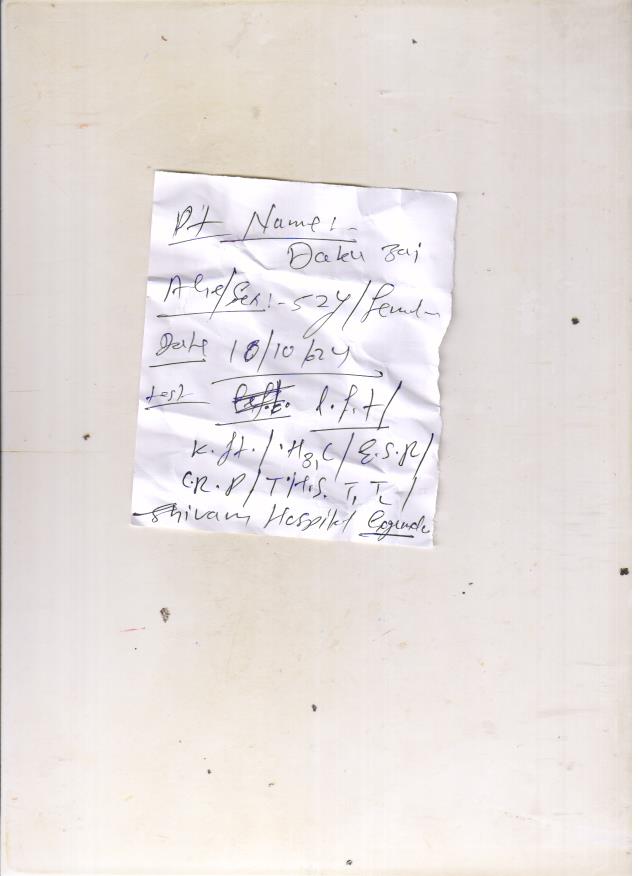 Pt Name :-
Daku Bai
Age/Sex :- 52y/Female
Date 10/10/24
test L.f.t/
K.ft./.HB,C/E.S.R/
C.R.P/T.H.S. T, T
Shivam Hospital